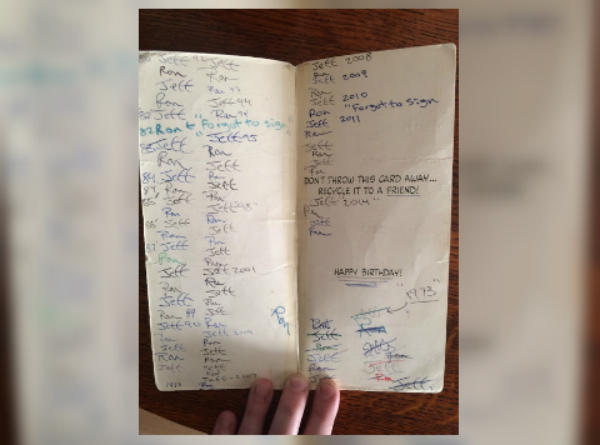 Jeff
Ron
Jeff
Ron
82 Jeff
82 Ron t "Forgot to sign"
83 Jeff
Ron
Jeff
84 Jeff
Ron
Jeff
Ron
Jeff
Ron
87 Jeff
Ron
Jeff
Ron
Jeff
Ron 89
Jeff 90
Ron
Jeff
Ron
Jeff
Jeff
Ron
Ron 93
Jeff 94
Ron
Jeff 95
Ron
Jeff
Ron
Jeff
Ron
Jeff
Ron
Jeff
Ron
Jeff
Jeff 2001
Ron
Jeff
Ron
Jeff
Ron
Jeff
Ron
Jeff
Ron
Jeff
Ron
Ron
Jeff 2008
Ron
Jeff 2009
Ron
Jeff 2010
Ron "Forgot to sign
Jeff 2011
Ron
Jeff
Ron
Jeff
Ron
DON'T THROW THIS CARD AWAY...
RECYCLE IT TO A FRIEND!
Jeff 2014
Ron
Jeff
Ron
HAPPY BIRTHDAY!
"1973"
Ron
Jeff
Ron
Jeff
Ron
Jeff
Ron
Jeff
Ron
Jeff
Ron
Jeff